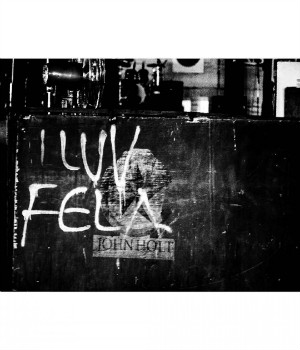 I LUV
FELA
JOHN HOLT